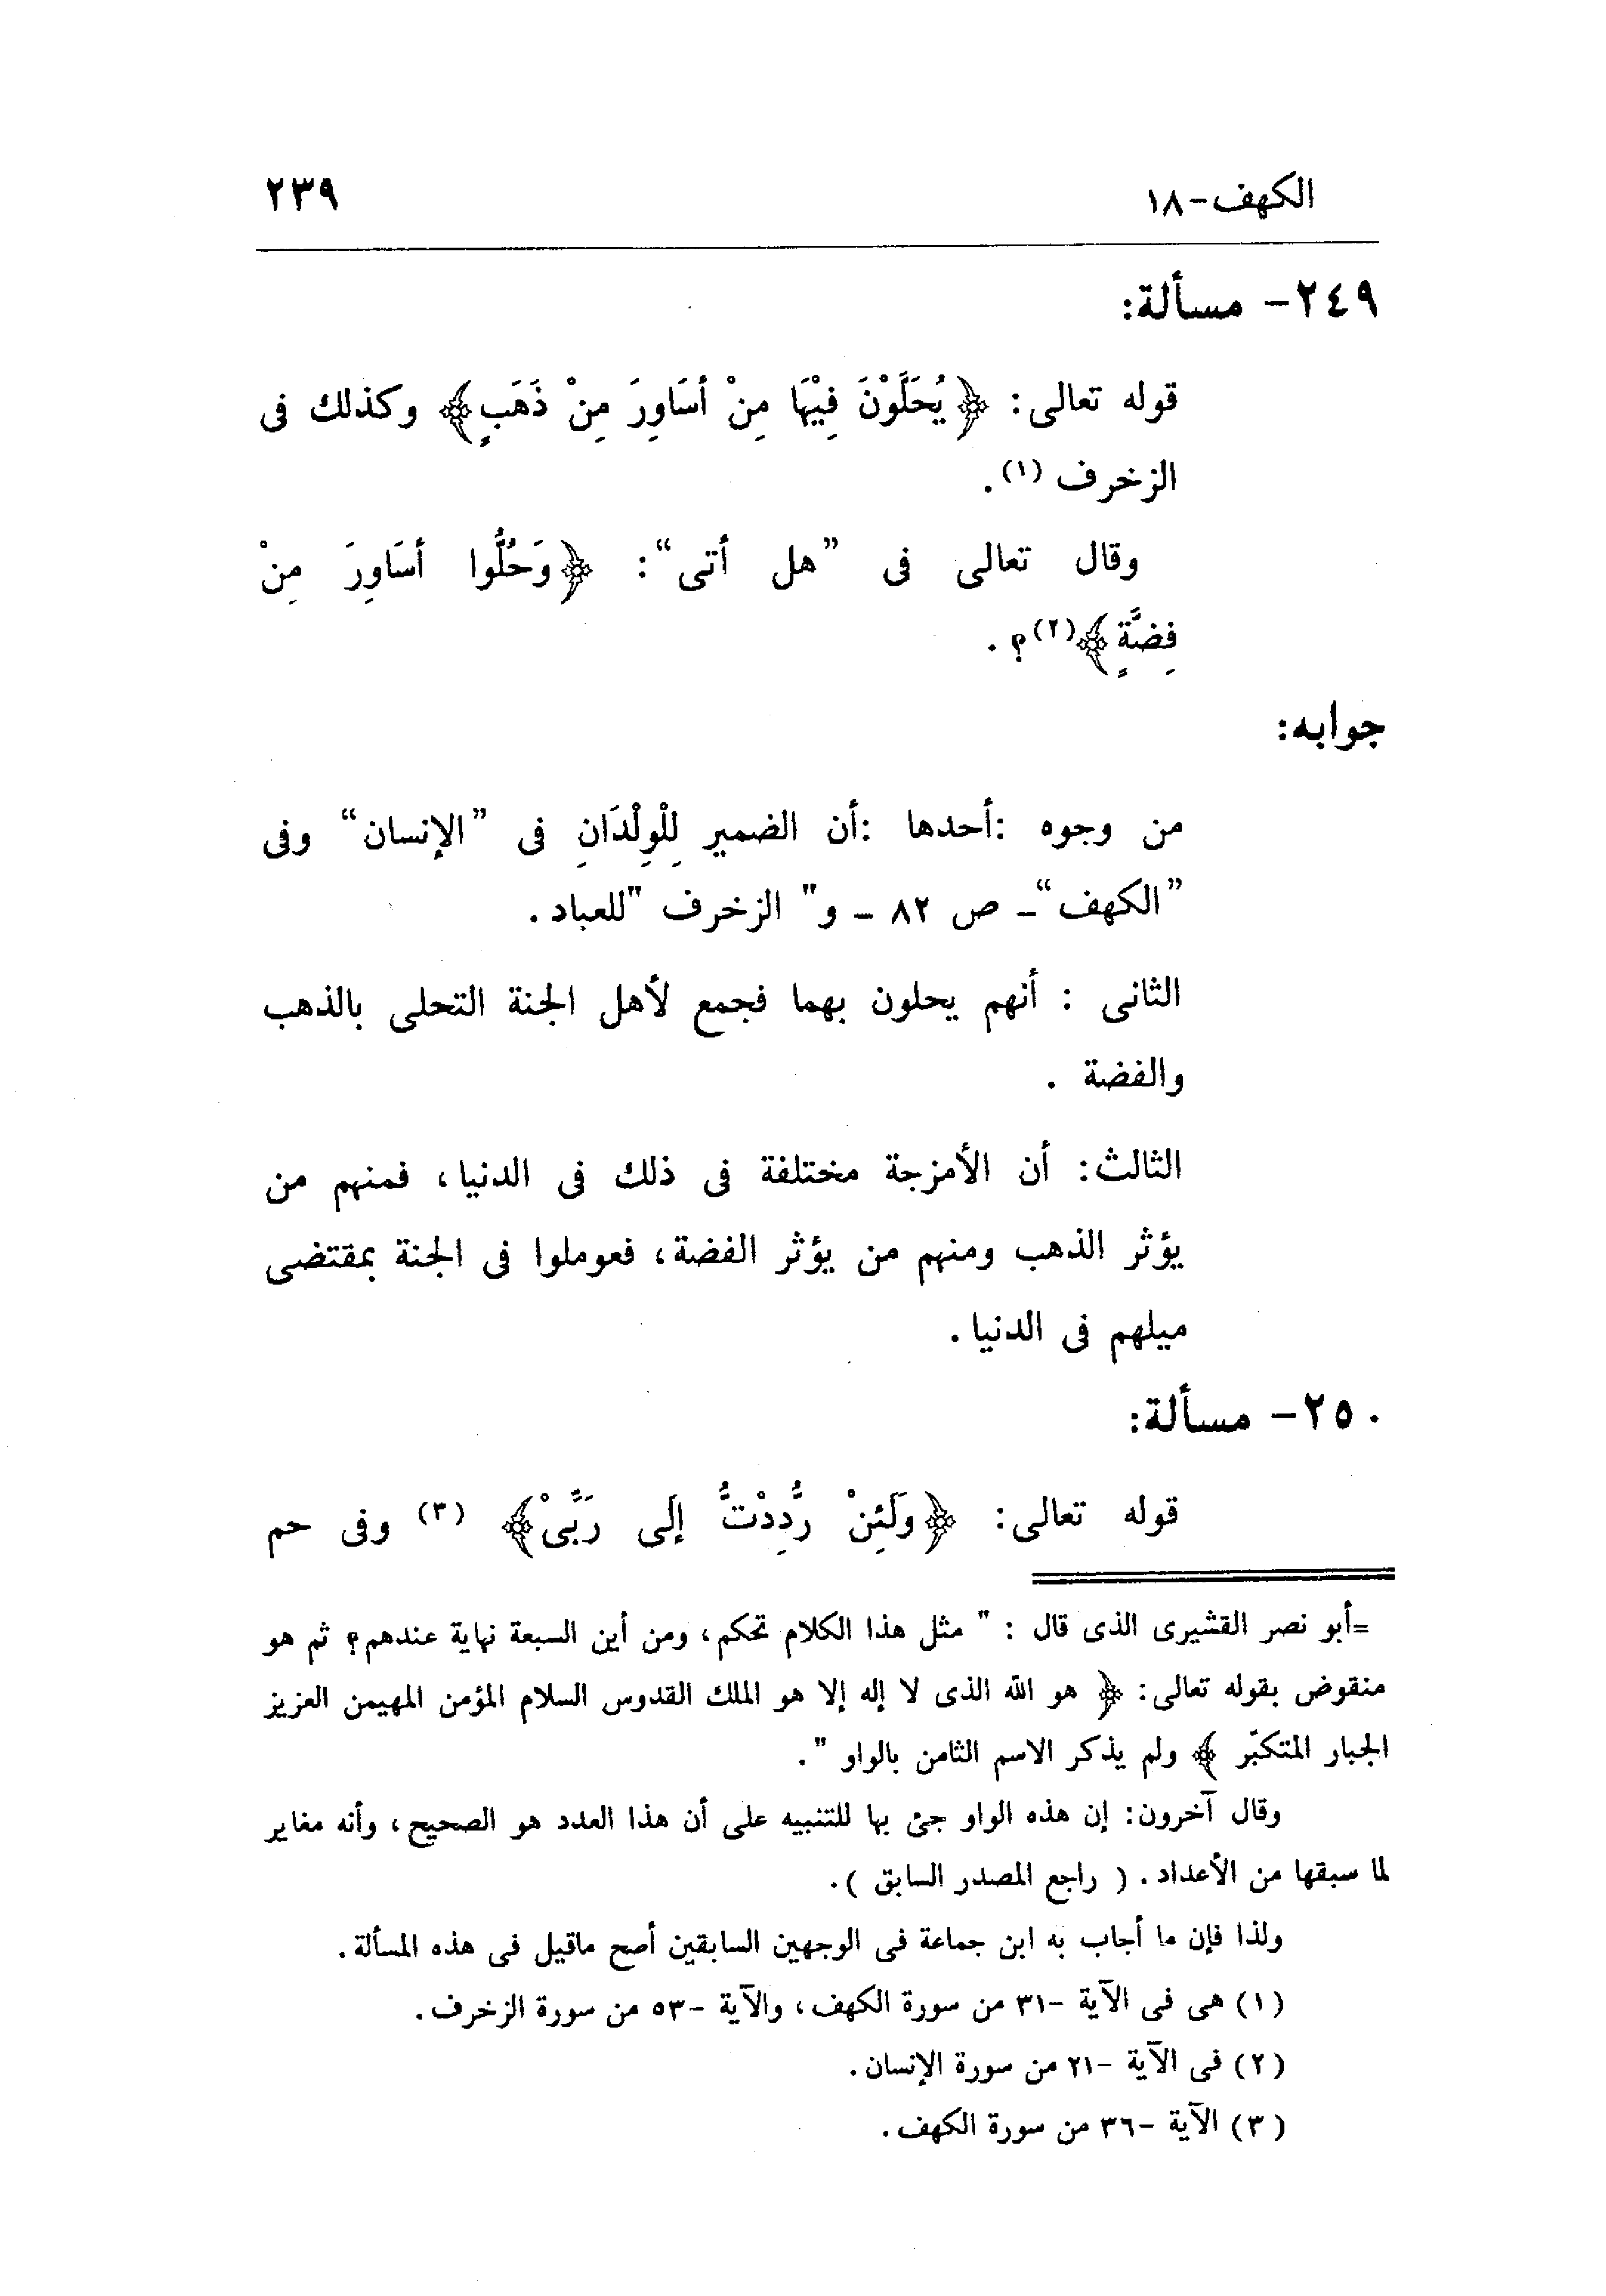 الكهف-١٨
٢٣٩
٢٤٩- مسألة:
قوله تعالى: ﴿يُحَلَّوْنَ فِيْهَا مِنْ أسَاوِرَ مِنْ ذَهَبٍ﴾ وكذلك فى
الزخرف (١).
وقال تعالى فى "هل أتى": ﴿وَحُلُّوا أسَاوِرَ مِنْ
فِضَّةٍ﴾(٢)؟ .
جوابه:
من وجوه :أحدها :أن الضمير لِلْوِلْدَانِ فى "الإنسان" وفى
"الكهف"ـ ص ٨٢ ـ و" الزخرف "للعباد.
الثانى : أنهم يحلون بهما فجمع لأهل الجنة التحلى بالذهب
والفضة .
الثالث: أن الأمزجة مختلفة فى ذلك فى الدنيا، فمنهم من
يؤثر الذهب ومنهم من يؤثر الفضة، فعوملوا فى الجنة بمقتضى
ميلهم فى الدنيا.
٢٥٠- مسألة:
قوله تعالى: ﴿وَلَئِنْ رُّدِدْتُّ إلَى رَبِّىْ﴾ (٣) وفى حم
=أبو نصر القشيرى الذى قال : " مثل هذا الكلام تحكم، ومن أين السبعة نهاية عندهم؟ ثم هو
منقوض بقوله تعالى: ﴿ هو الله الذى لا إله إلا هو الملك القدوس السلام المؤمن المهيمن العزيز
الجبار المتكبّر ﴾ ولم يذكر الاسم الثامن بالواو ".
وقال آخرون: إن هذه الواو جئ بها للتنبيه على أن هذا العدد هو الصحيح، وأنه مغاير
لما سبقها من الأعداد. ( راجع المصدر السابق ).
ولذا فإن ما أجاب به ابن جماعة فى الوجهين السابقين أصح ماقيل فى هذه المسألة.
(١) هى فى الآية -٣١ من سورة الكهف، والآية -٥٣ من سورة الزخرف.
(٢) فى الآية -٢١ من سورة الإنسان.
(٣) الآية -٣٦ من سورة الكهف.